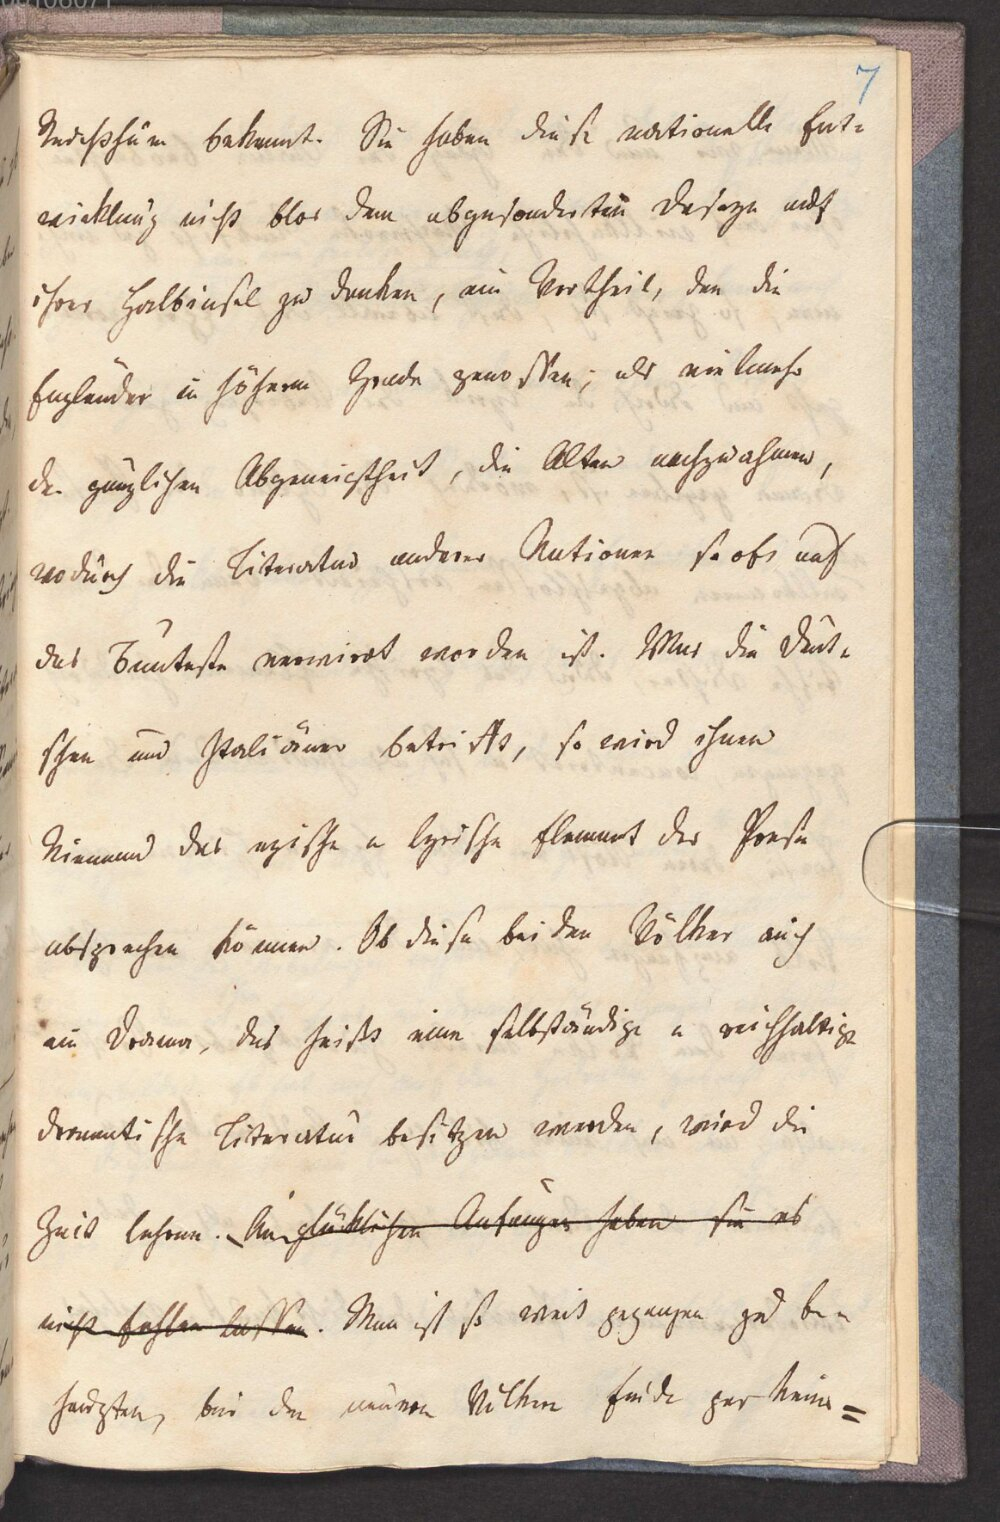 00106071
7
Reichthum bekannt. Sie haben diese nationelle Ent-
wicklung nicht blos dem abgesonderten Daseyn auf
ihrer Halbinsel zu danken, ein Vortheil, den die
Engländer in höherm Grade genossen; als vielmehr
der gänzlichen Abgeneigtheit, die Alten nachzuahmen,
wodurch die Literatur anderer Nationen so oft auf
das Bunteste verwirrt worden ist. Was die Deut-
schen und Italiäner betrifft, so wird ihnen
Niemand das epische u lyrische Element der Poesie
absprechen können. Ob diese beiden Völker auch
ein Drama, das heißt eine selbständige u reichhaltige
dramatische Literatur besitzen werden, wird die
Zeit lehren. An glücklichen Anfängen haben sie es
nicht fehlen lassen. Man ist so weit gegangen zu be-
haupten, bei den neuern Völkern finde gar keine